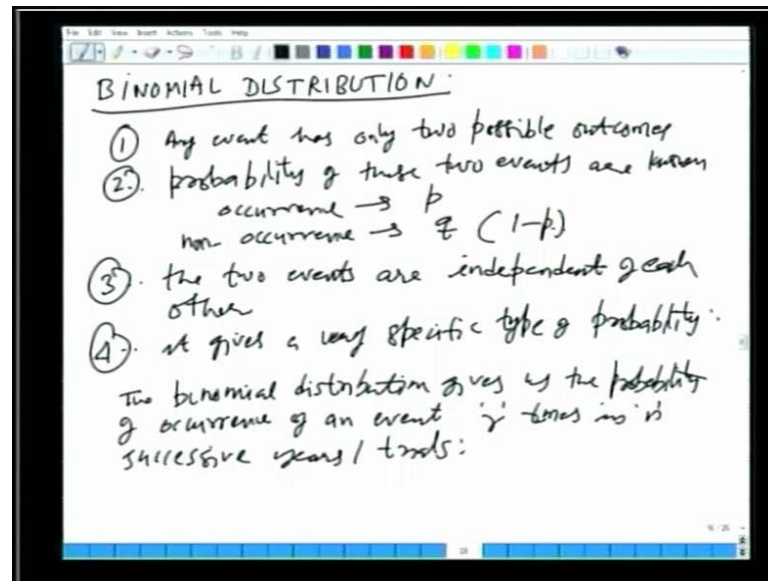 File Edit View Insert Actions Tools Help
BINOMIAL DISTRIBUTION:
① Any event has only two possible outcomes
②. probability of these two events are known
occurrence → p
non occurrence → q (1-p)
③. the two events are independent of each
other
④. it gives a very specific type of probability:
The binomial distribution gives us the probability
of occurrence of an event 'r' times in 'n'
successive years / trials: